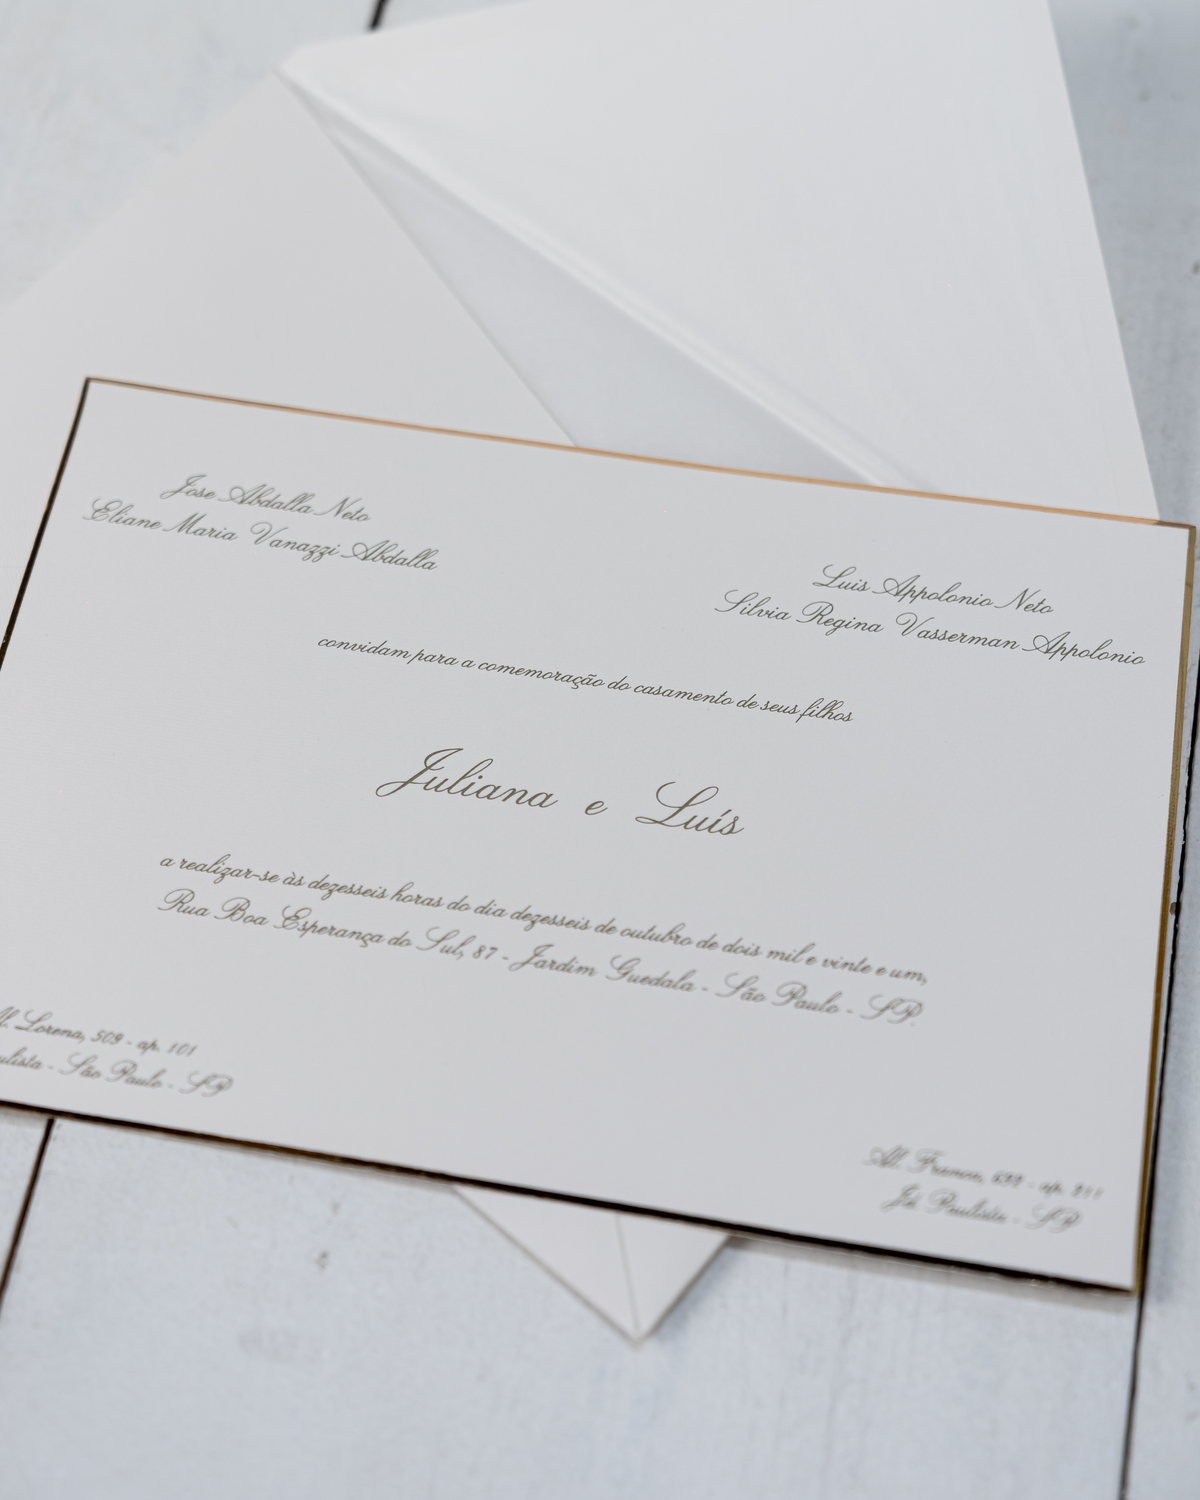 Jose Abdalla Neto
Eliane Maria Vanazzi Abdalla
Luis Appolonio Neto
Silvia Regina Vasserman Appolonio
convidam para a comemoração do casamento de seus filhos
Juliana e Luís
a realizar-se às dezesseis horas do dia dezesseis de outubro de dois mil e vinte e um,
Rua Boa Esperança do Sul, 87 - Jardim Guedala - São Paulo - SP.
Lorena, 509 - ap. 101
- São Paulo - SP
Al. Franca, - ap.
Jd. Paulista - SP